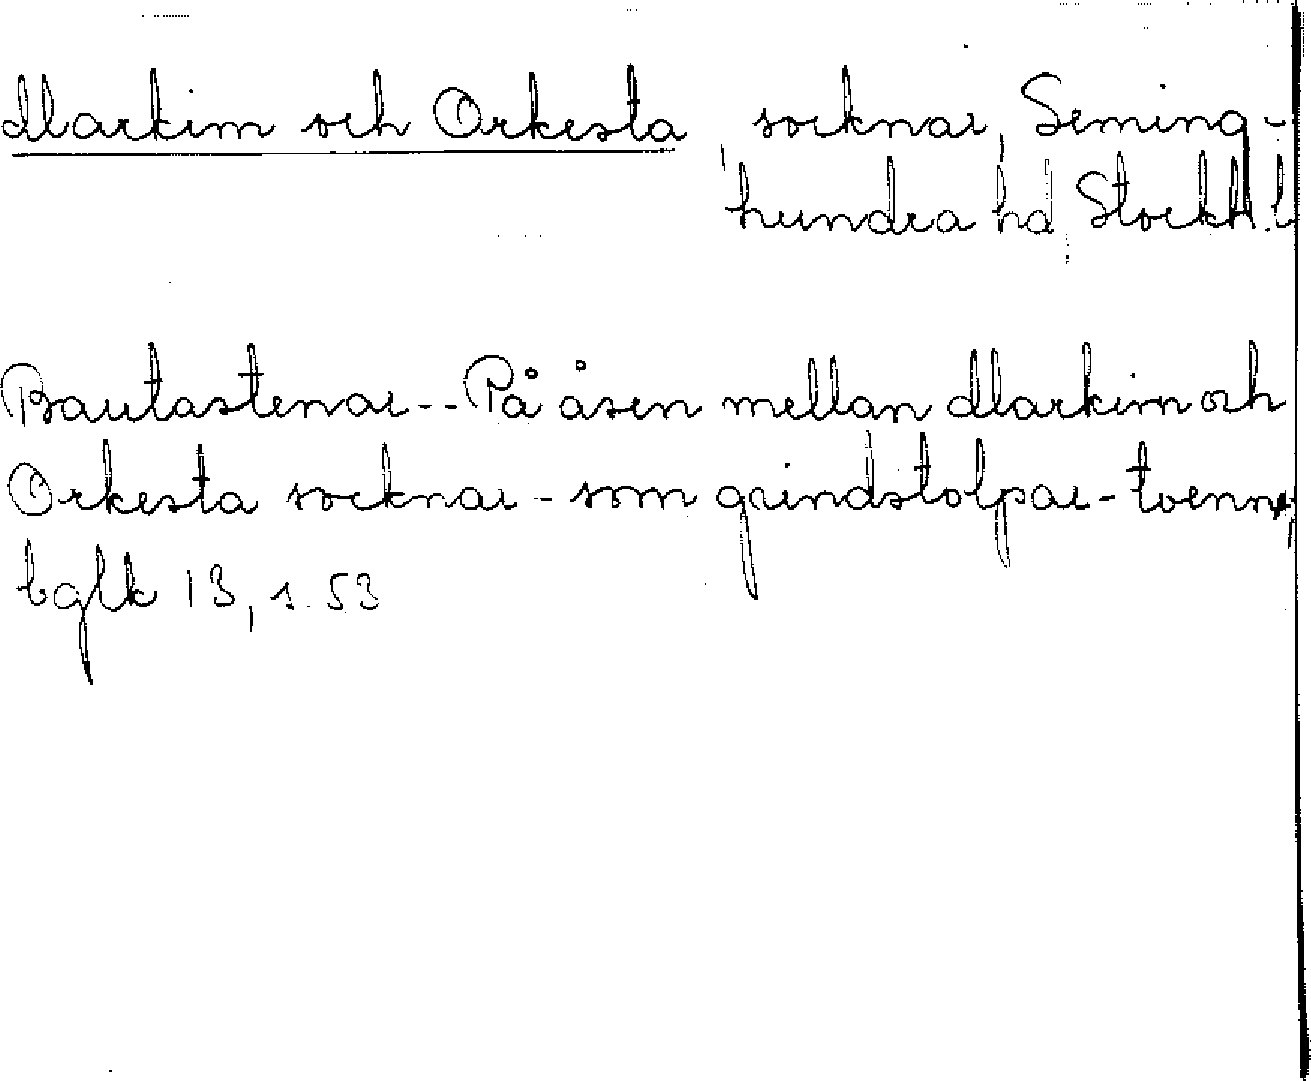 Markim och Orkesta, socknar, Seming-
hundra hd, Stockh. l
Bautastenar -- På åsen mellan Markim och
Orkesta socknar - som grindstolpar - tvenne,
bglk 13, s. 53